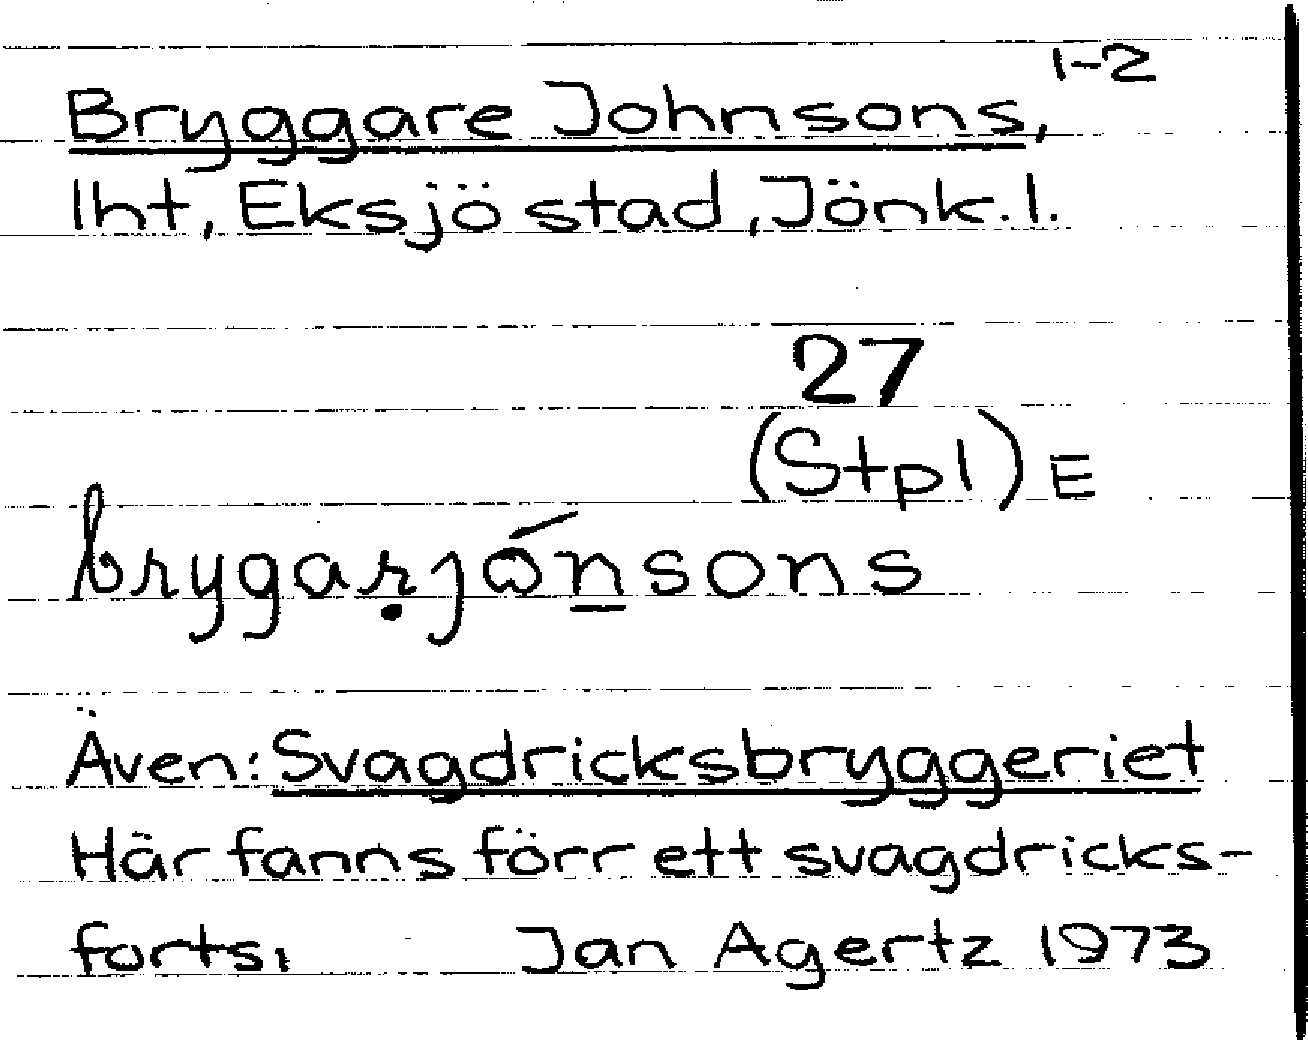 1-2
Bryggare Johnsons,
lht, Eksjö stad, Jönk.l.
27
(Stpl) E
brygaṛjón̲sons
Även: Svagdricksbryggeriet
Här fanns förr ett svagdricks-
forts. Jan Agertz 1973